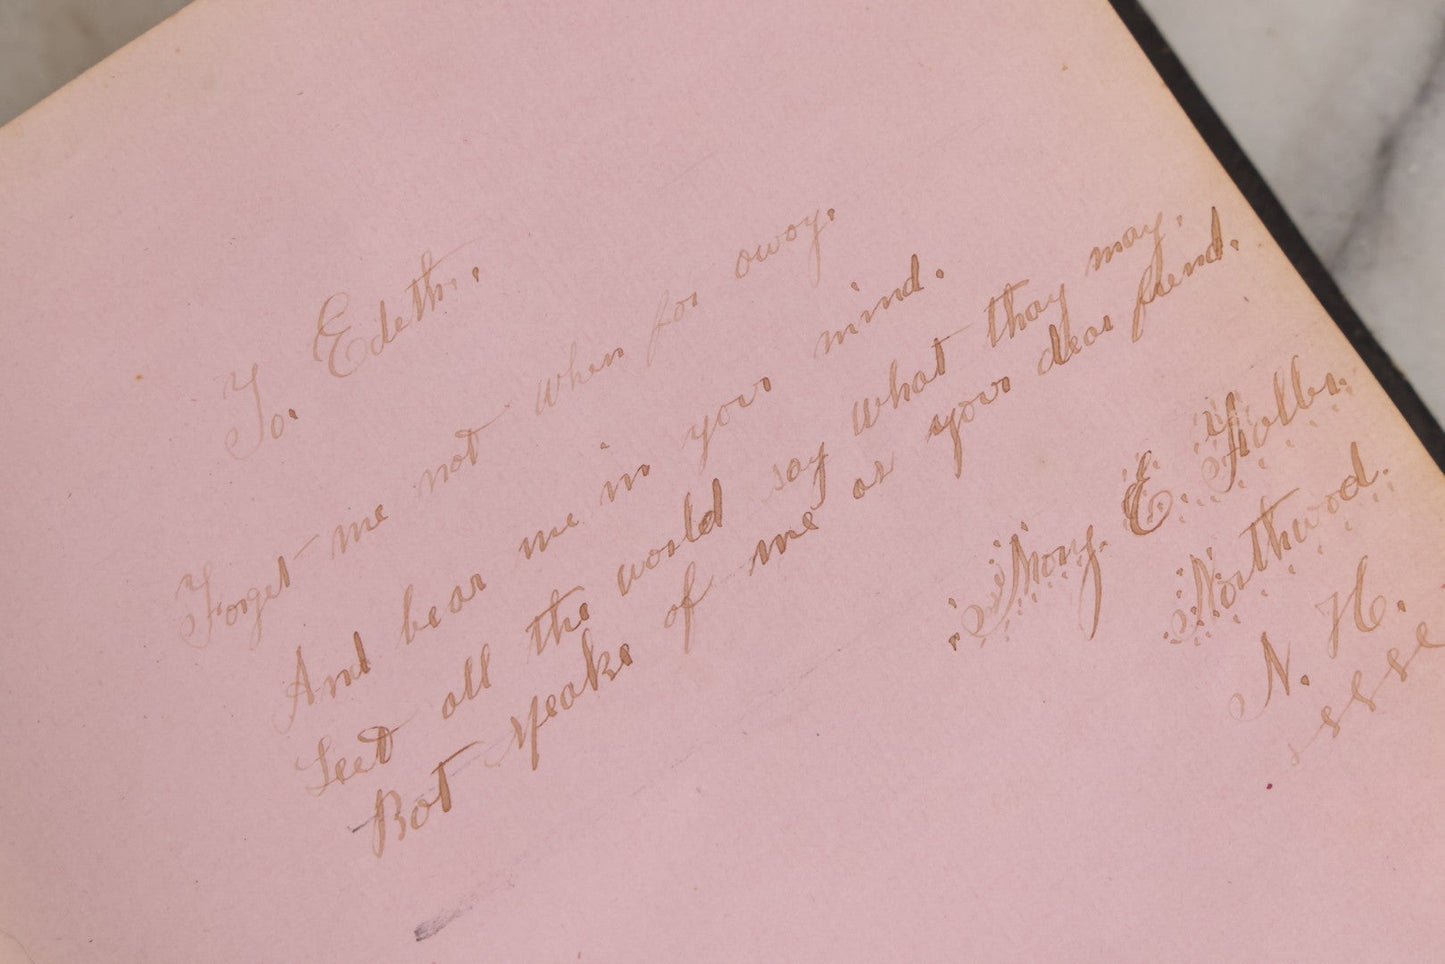 To. Edeth.
Forget me not when far away.
And bear me in your mind.
Leet all the world say what thay may.
Bot speake of me as your dear friend.
Mary. E. Folbs.
Northwood.
N. H.